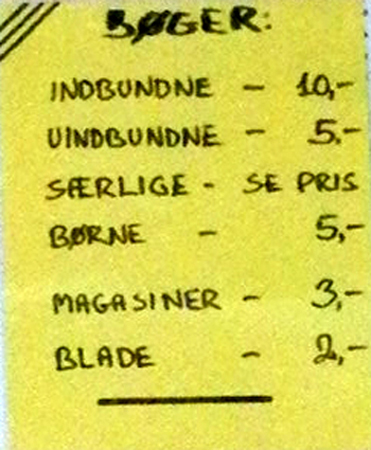 BØGER:
INDBUNDNE - 10,-
UINDBUNDNE - 5.-
SÆRLIGE - SE PRIS
BØRNE - 5,-
MAGASINER - 3,-
BLADE - 2,-